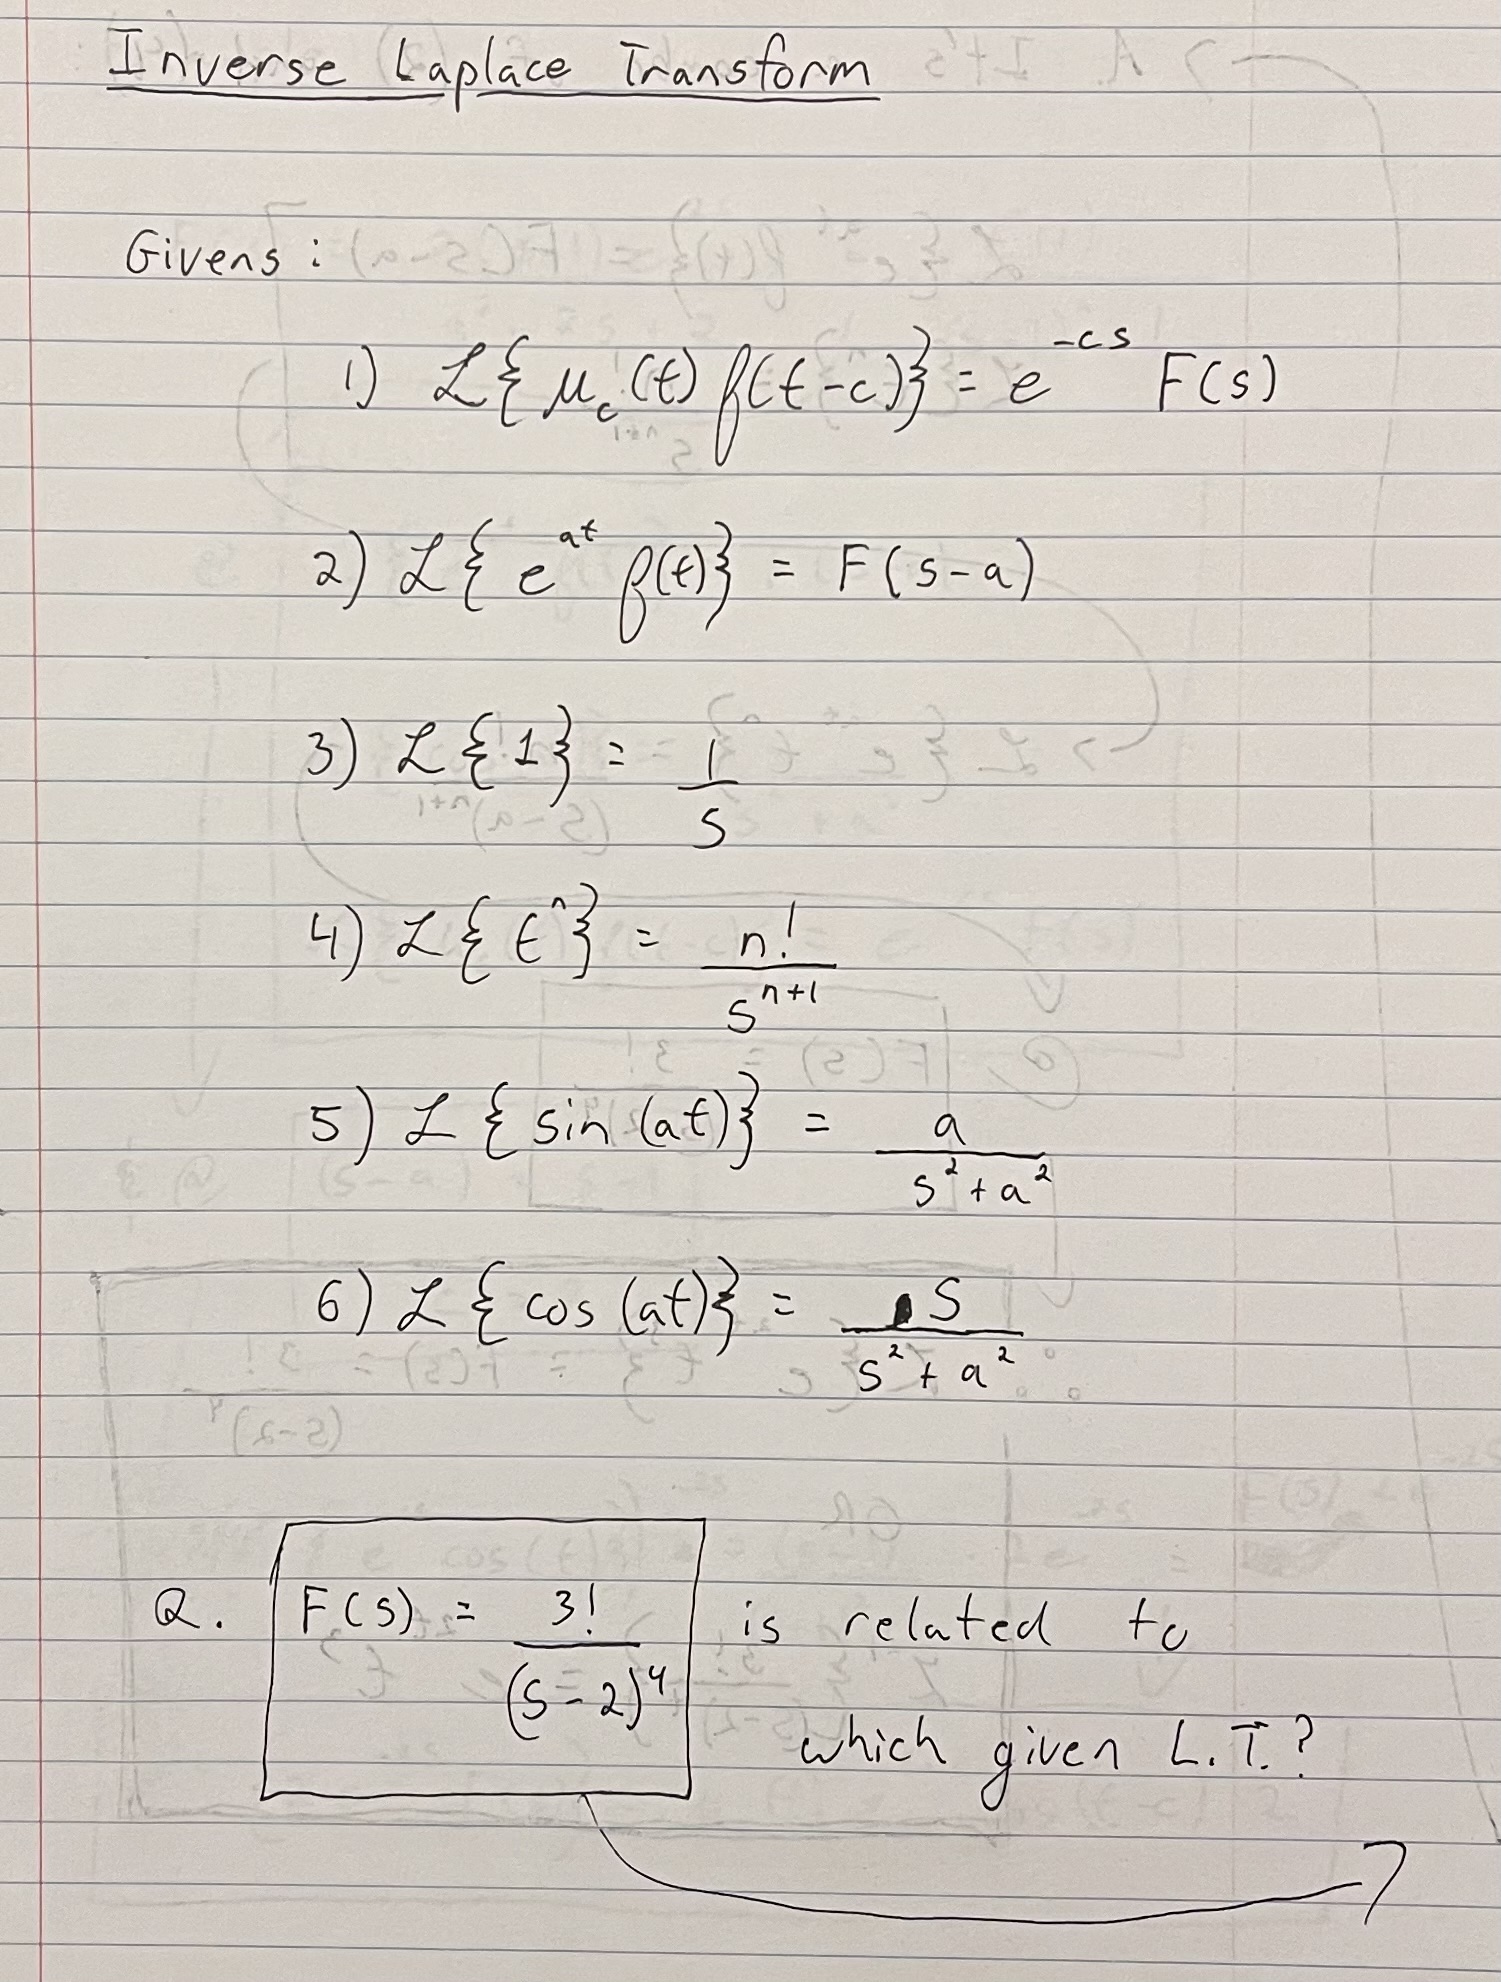 Inverse Laplace Transform
Givens:
1) ℒ{μ_c(t) f(t-c)} = e^{-cs} F(s)
2) ℒ{e^{at} f(t)} = F(s-a)
3) ℒ{1} = 1/s
4) ℒ{t^n} = n!/s^{n+1}
5) ℒ{sin(at)} = a/(s²+a²)
6) ℒ{cos(at)} = s/(s²+a²)
Q. F(s) = 3!/(s-2)^4 is related to
which given L.T.?